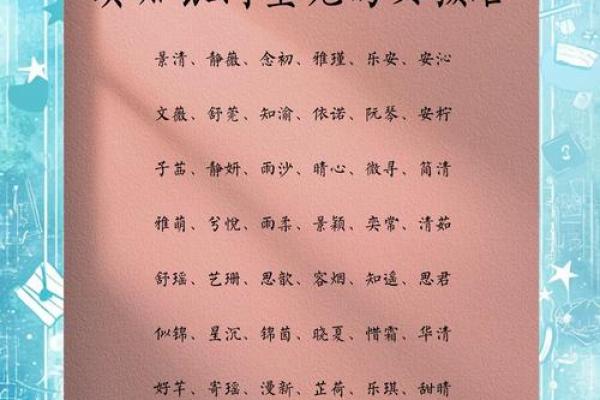 景清、静薇、念初、雅瑾、乐安、安沁
文薇、舒莞、知渝、依诺、阮琴、安柠
子茜、静妍、雨沙、晴心、微寻、简清
雅萌、兮悦、雨柔、景颖、奕常、清茹
舒瑶、艺珊、思歆、容烟、知遥、思君
似锦、星沉、锦茵、晓夏、惜霜、华清
好芊、寄瑶、漫新、芷荷、乐琪、甜晴